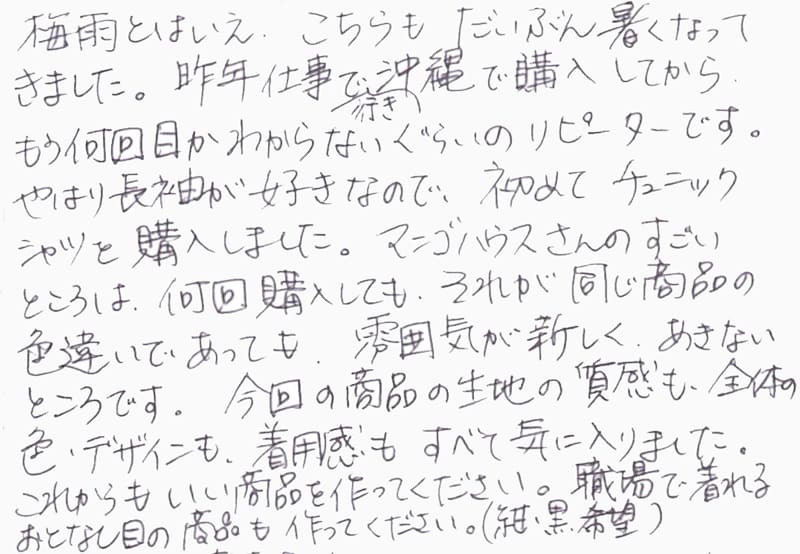 梅雨とはいえ、こちらも だいぶん暑くなって
きました。昨年仕事で行き沖縄で購入してから、
もう何回目かわからないぐらいのリピーターです。
やはり長袖が好きなので、初めて チュニック
シャツを購入しました。マンゴハウスさんのすごい
ところは、何回購入しても、それが同じ商品の
色違いであっても、雰囲気が新しく、あきない
ところです。今回の商品の生地の質感も、全体の
色・デザインも、着用感もすべて気に入りました。
これからもいい商品を作ってください。職場で着れる
おとなし目の商品も作ってください。(紺・黒希望)